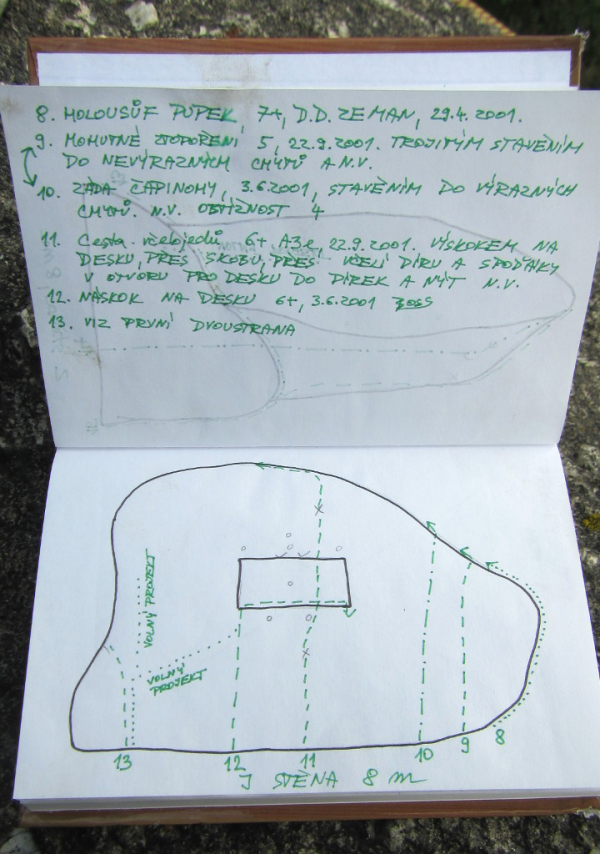 8. HOLOUSŮF PUPEK 7+, D.D. ZEMAN, 29.4. 2001.
9. MOHUTNÉ ZTOPOŘENÍ 5, 22.9.2001. TROJITÝM STAVĚNÍM
DO NEVÝRAZNÝCH CHYTŮ A N.V.
10. ZÁDA ČAPINOHY, 3.6.2001, STAVĚNÍM DO VÝRAZNÝCH
CHYTŮ. N.V. OBTÍŽNOST 4
11. Cesta včelojedů 6+ A3e, 22.9.2001. VÝSKOKEM NA
DESKU, PŘES SKOBU, PŘES VČELÍ DÍRU A SPOĎÁKY
V OTVORU PRO DESKU DO DÍREK A NÝT N.V.
12. NÁSKOK NA DESKU 6+, 3.6.2001
13. VIZ PRVNÍ DVOUSTRANA
VOLNÝ PROJEKT
VOLNÝ
PROJEKT
13 12 11 10 9 8
J STĚNA 8 m